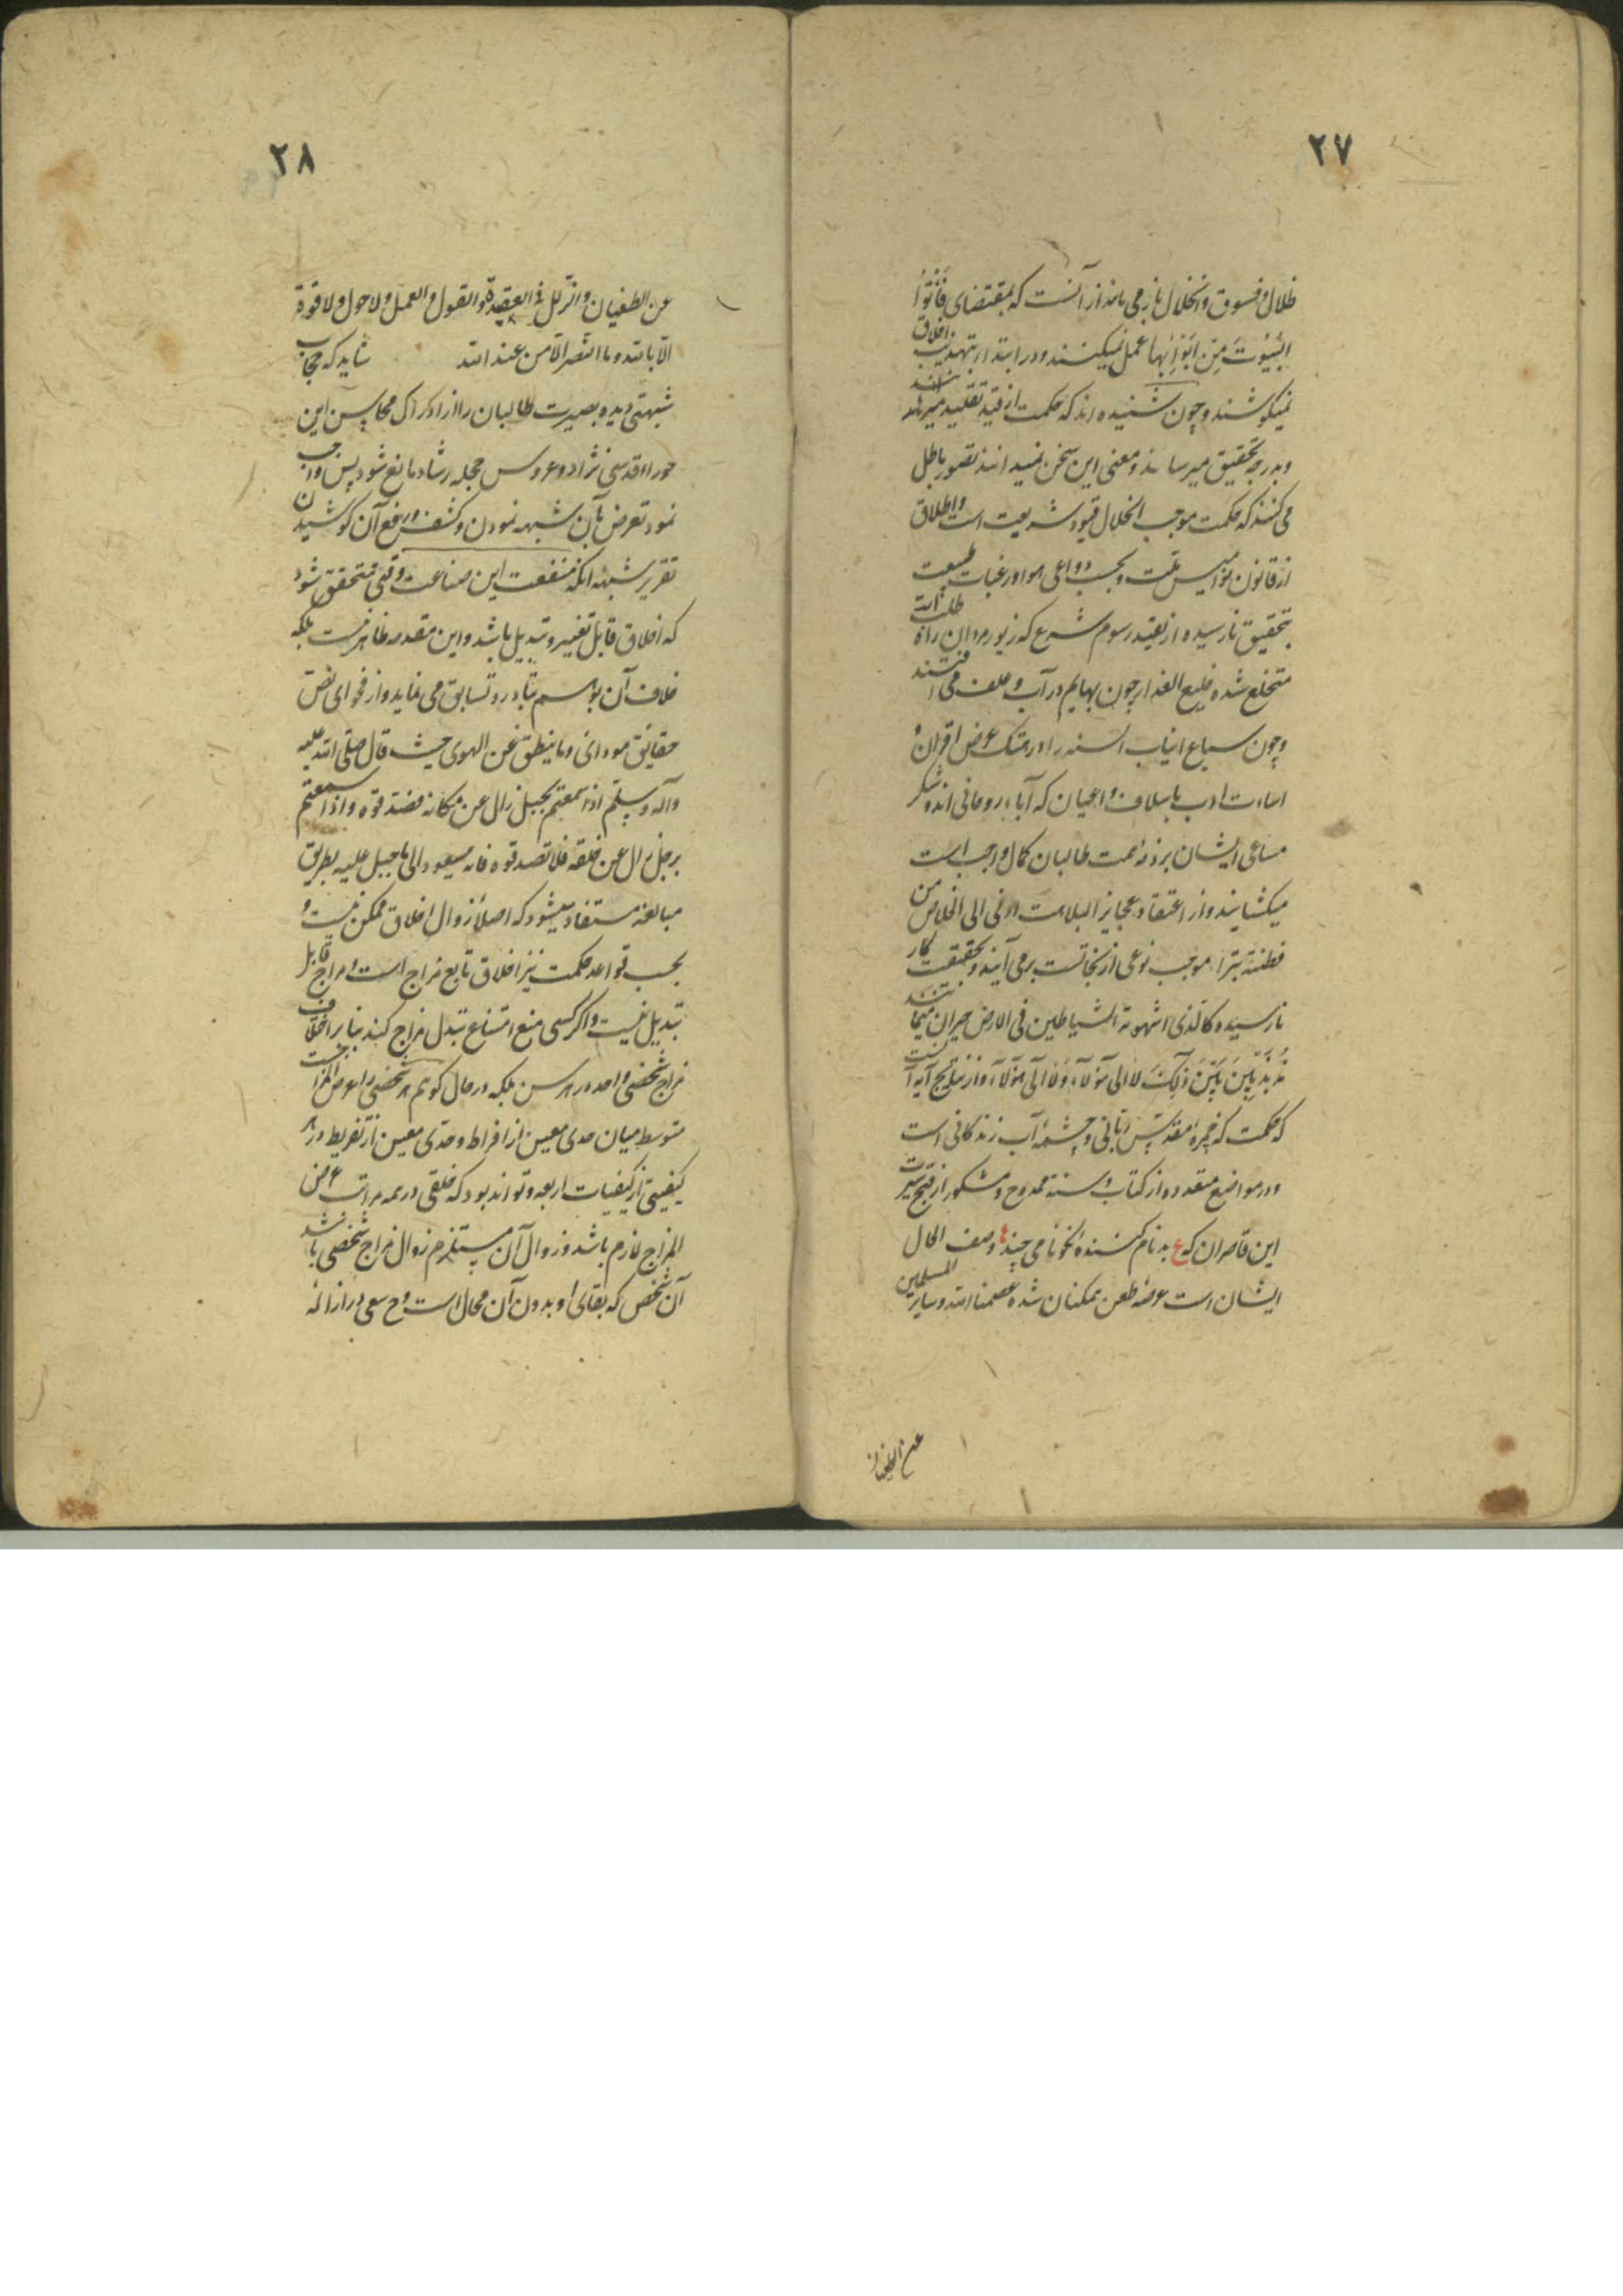 ۲۷
ظلال و فسوق و انحلال باز می ماند از آنست که بمقتضای فَأْتُوا
الْبُیُوتَ مِنْ أَبْوَابِهَا عمل نمیکنند و در ابتدا بتهذیب اخلاق
نمیکوشند و چون شنیده اند که حکمت از قید تقلید میرهاند
و بدرجه تحقیق میرساند و معنی این سخن نمیدانند تصور باطل
می کنند که حکمت موجب انحلال قیود شریعت است و اطلاق
از قانون نوامیس ملت و بحسب دواعی هوا و رغبات طبیعت
بتحقیق نارسیده از تقید رسوم شرع که زیور مردان راه طلبست
منخلع شده خلیع العذار چون بهایم در آب و علف می افتند
و چون سباع انیاب السنه را در هتک عرض اقران و
اساءت ادب با سلاف و اعیان که آباء روحانی اند و شکر
مساعی ایشان بر ذمه همت طالبان کمال واجب است
میکشایند و از اعتقاد عجایز البلاهت ادنی الی الخلاص من
فطنة بتراء موجب نوعی از نجاتست برمی آیند و بحقیقت کار
نارسیده کالذی استهوته الشیاطین فی الارض حیران میمانند
مُذَبْذَبِینَ بَیْنَ ذَلِکَ لا الی هؤلاء ولا الی هؤلاء و از نتایج آیه آنست
که حکمت که خمیره مقدس ربانی و چشمه آب زندکانی است
و در مواضع متعدده از کتاب و سنة ممدوح و مشکور از قبح سیرت
این قاصران که ع بدنام کنندهٔ نکونامی چند ها وصف الحال
ایشان است عرضه طعن همکنان شده عصمنا الله و سایر المسلمین
عن الطغیان
۲۸
عن الطغیان و الزلل فی العقیدة و القول و العمل و لا حول و لا قوة
الا بالله و ما النصر الا من عند الله شاید که حجاب
شبهتی دیده بصیرت طالبان را از ادراک محاسن این
حوراء قدسی نژاد و عروس حجله رشاد مانع شود پس واجب
نمود تعرض بآن شبهه نمودن و کشف و رفع آن کوشیدن
تقریر شبهه آنکه منفعت این صناعت وقتی متحقق شود
که اخلاق قابل تغییر و تبدیل باشد و این مقدمه ظاهر نیست بلکه
خلاف آن بوهم تبادر و تسابق می نماید و از فحوای نص
حقایق مودای و ما ینطق عن الهوی حیث قال صلی الله علیه
وآله وسلم اذا سمعتم بجبل زال عن مکانه فصدقوه و اذا سمعتم
برجل زال عن خلقه فلا تصدقوه فانه سیعود الی ما جبل علیه بطریق
مبالغه مستفاد میشود که اصلا زوال اخلاق ممکن نیست و
بحسب قواعد حکمت نیز اخلاق تابع مزاج است و مزاج قابل
تبدیل نیست و اکر کسی منع امتناع تبدل مزاج کند بنابر اختلاف
مزاج شخصی واحد در هر سن بلکه در حال کوئیم هر شخصی را عرض المزاجست
متوسط میان حدی معین از افراط و حدی معین از تفریط در هر
کیفیتی از کیفیات اربعه و تواند بود که خلقی در همه مراتب عرض
المزاج لازم باشد و زوال آن مستلزم زوال مزاج شخصی باشد
آن شخص که بقای او بدون آن محال است و ح سعی در ازاله